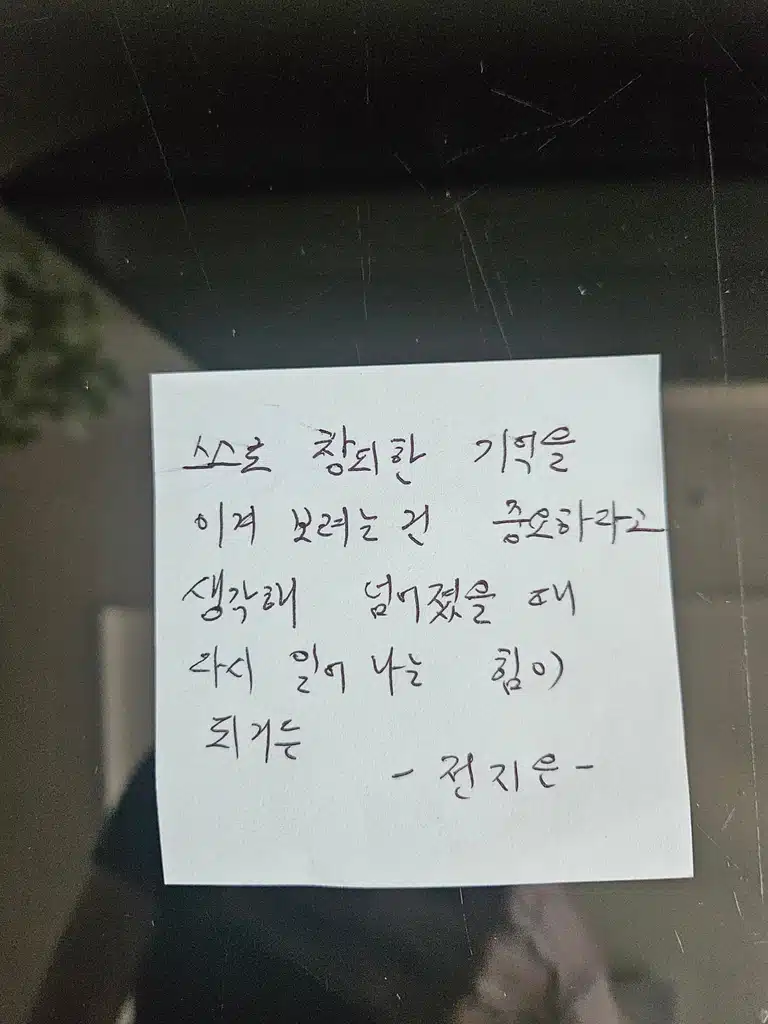 스스로 창피한 기억을
이겨 보려는 건 중요하라고
생각해 넘어졌을 때
다시 일어 나는 힘이
되거든
- 전지은 -